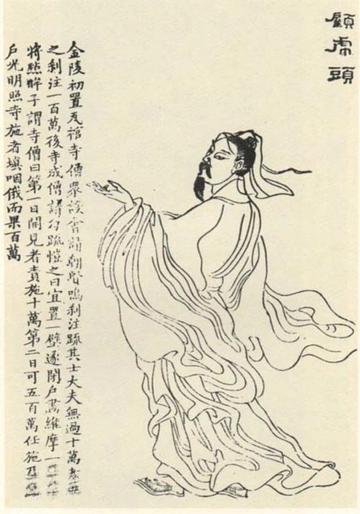 顧虎頭
金陵初置瓦棺寺僧眾設會請朝賢鳴刹注疏其士大夫無過十萬
之刹注一百萬後寺成僧請勾疏愷之曰宜置一壁遂閉戶畫維摩一
將點眸子謂寺僧曰第一日開見者責施十萬第二日可五百萬任施
戶光明照寺施者填咽俄而果百萬